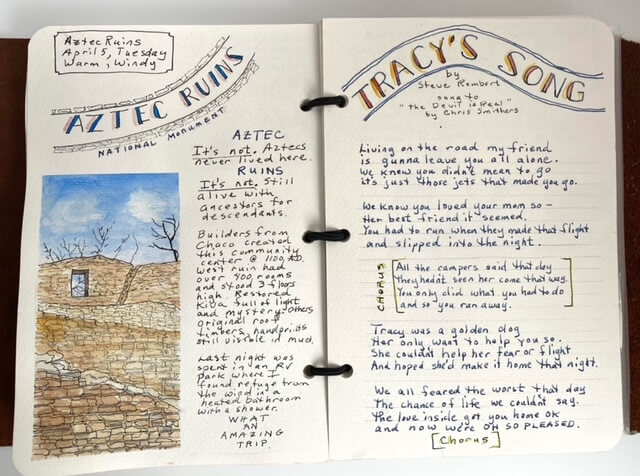 Aztec Ruins
April 5, Tuesday
Warm, Windy
AZTEC RUINS
NATIONAL MONUMENT
AZTEC
It's not. Aztecs
never lived here.
RUINS
It's not. Still
alive with
ancestors for
descendants.
Builders from
Chaco created
this community
center @ 1100, AD.
West ruin had
over 400 rooms
and stood 3 floors
high. Restored
kiva full of light
and mystery. Others
original roof
timbers, handprints
still visible in mud.
Last night was
spent in an RV
Park where I
found refuge from
the wind in a
heated bathroom
with a shower.
WHAT
AN
AMAZING
TRIP.
TRACY'S SONG
by
Steve Rembert
sung to
"The Devil is Real"
by Chris Smithers
Living on the road my friend
is gunna leave you all alone.
We knew you didn't mean to go
it's just those jets that made you go.
We know you loved your mom so-
Her best friend it seemed.
You had to run when they made that flight
and slipped into the night.
CHORUS
All the campers said that day
they hadn't seen her come that way.
You only did what you had to do
and so you ran away.
Tracy was a golden dog
Her only want to help you so.
She couldn't help her fear or flight
And hoped she'd make it home that night.
We all feared the worst that day
The chance of life we couldn't say.
The love inside got you home ok
and now we're OH SO PLEASED.
[Chorus]